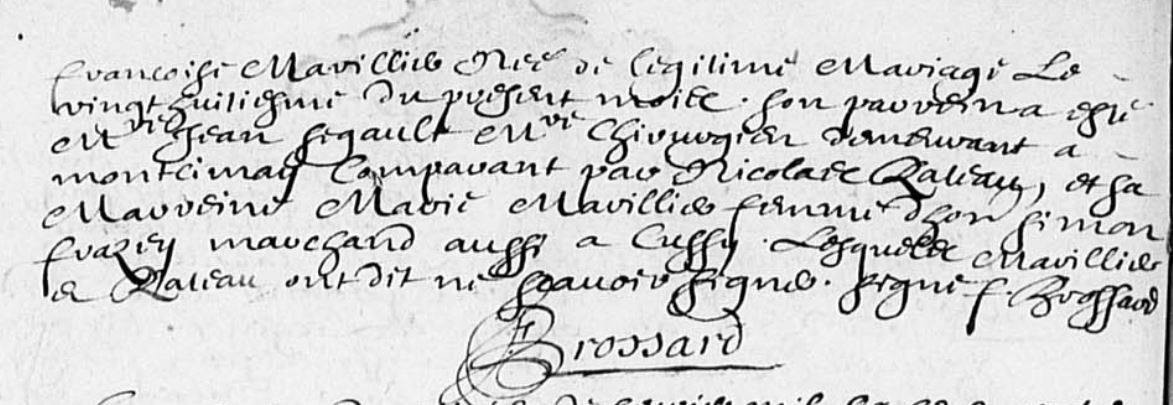 francoise Mavillier Neé de legitime Mariage Le
vingt huitiesme du present mois. son parrein a esté
Mre Jean segault Mre Chirurgien demeurant a
montcimay Comparant par Nicolas Rateau, et sa
Marreine Marie Mavillier femme dhon simon
frazey marchand aussi a Cussy. Lesquels Mavillier
et Rateau ont dit ne scavoir signer. signé f Brossard
Brossard